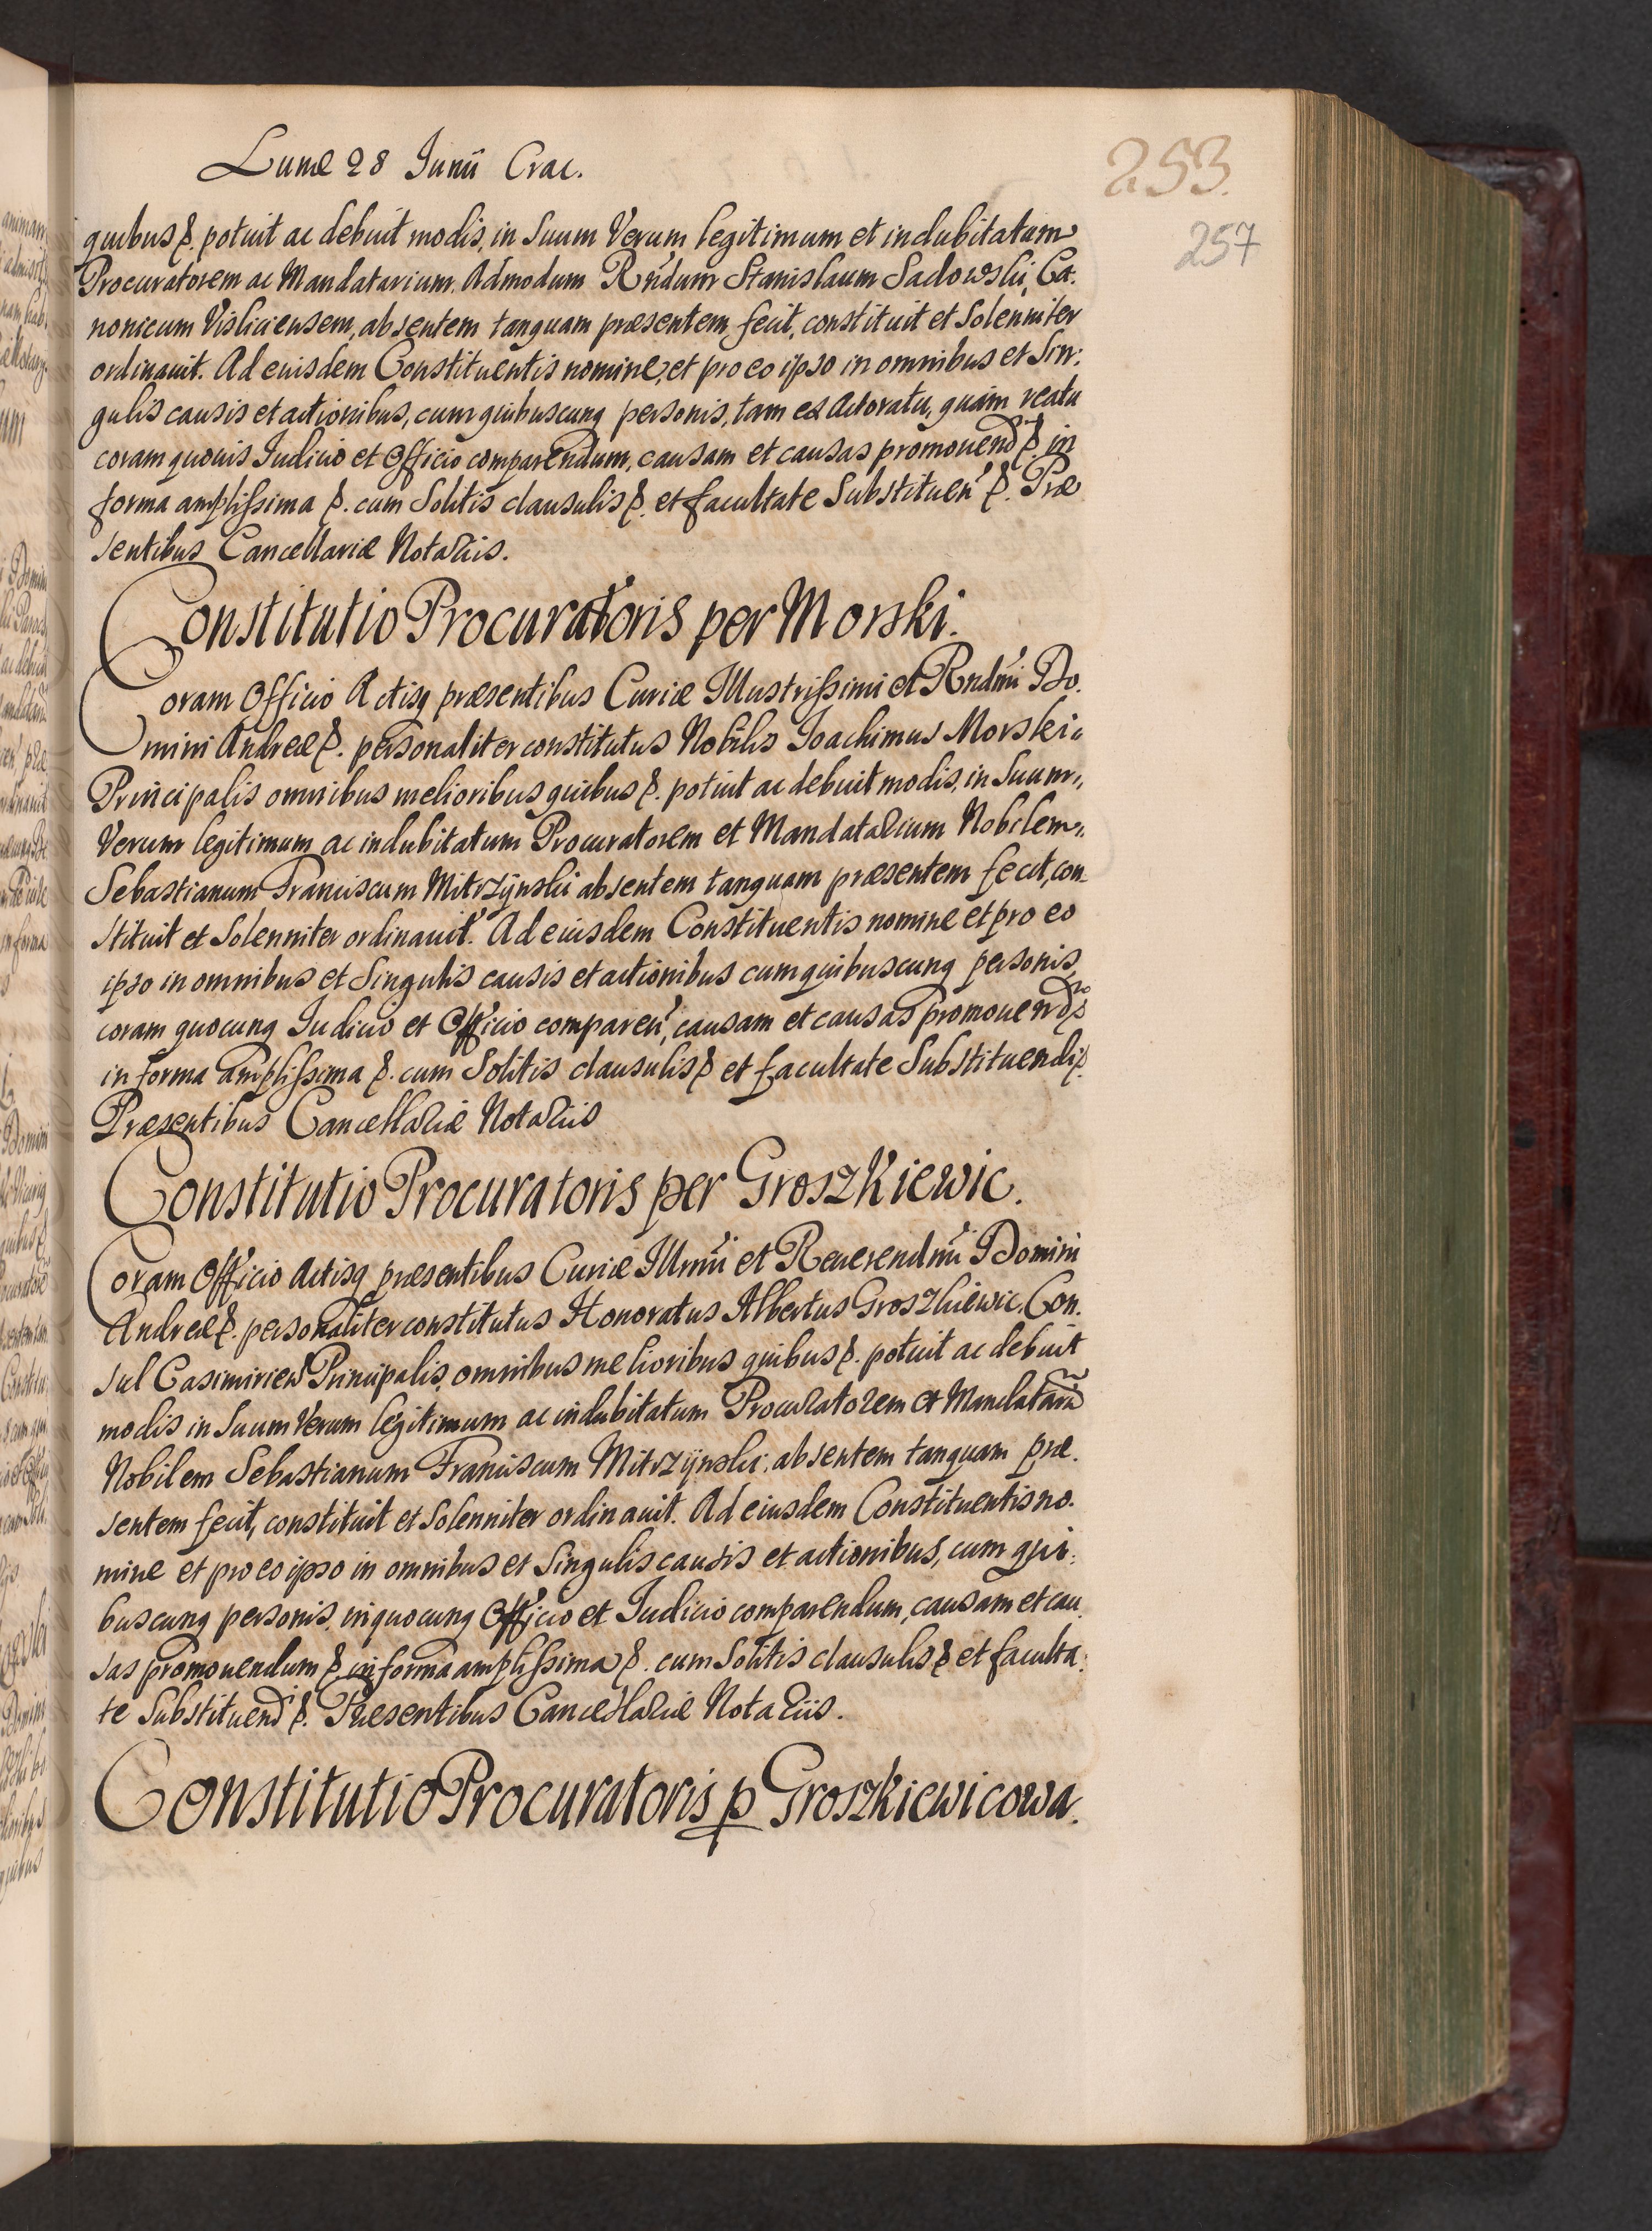 Lunæ 28 Junii Crac.
253.
257
quibus &. potuit ac debuit modis, in Suum Verum legitimum et indubitatum
Procuratorem ac Mandatarium. Admodum Rndum Stanislaum Sadowski, Ca:
nonicum Visliciensem, absentem tanquam præsentem, fecit, constituit et Solenniter
ordinauit. Ad euisdem Constituentis nomine, et pro eo ipso in omnibus et Sin:
gulis causis et actionibus, cum quibuscunq personis, tam ex Actoratu, quàm reatu
coram quouis Iudicio et Officio comparendum, causam et causas promouend &. in
forma amplissima &. cum Solitis clausulis &. et facultate Substituen &. Præ
sentibus Cancellariæ Notariis.
Constitutio Procuratoris per Morski.
Coram Officio Actisq præsentibus Curiæ Illustrissimi et Rndmi Do.
mini Andreæ &. personaliter constitutus Nobilis Joachimus Morski.
Principalis omnibus melioribus quibus &. potuit ac debuit modis, in Suum,
Verum legitimum ac indubitatum Procuratorem et Mandatarium Nobilem,
Sebastianum Franciscum Mitrzÿnski absentem tanquam præsentem fecit, con-
stituit et Solenniter ordinauit. Ad eiusdem Constituentis nomine et pro eo
ipso in omnibus et Singulis causis et actionibus cum quibuscunq personis,
coram quocunq Iudicio et Officio comparen, causam et causas promouend &
in forma amplissima &. cum Solitis clausulis & et facultate Substituendi &.
Præsentibus Cancellariæ Notariis
Constitutio Procuratoris per Groszkiewic.
Coram Officio Actisq præsentibus Curiæ Illmi et Reuerendmi Domini
Andreæ &. personaliter constitutus Honoratus Albertus Groszkiewic, Con.
sul Casimirien Principalis, omnibus melioribus quibus &. potuit ac debuit
modis in Suum Verum legitimum ac indubitatum Procuratorem et Mandatariu
Nobilem Sebastianum Franciscum Mitrzÿnski, absentem tanquam præ.
sentem fecit, constituit et Solenniter ordinauit. Ad eiusdem Constituentis no.
mine et pro eo ipso in omnibus et Singulis causis et actionibus, cum qui:
buscunq personis, in quocunq Officio et Iudicio comparendum, causam et cau
sas promouendum & in forma amplissima &. cum Solitis clausulis & et faculta:
te Substituend &. Præsentibus Cancellariæ Notariis.
Constitutio Procuratoris p Groszkiewicowa.